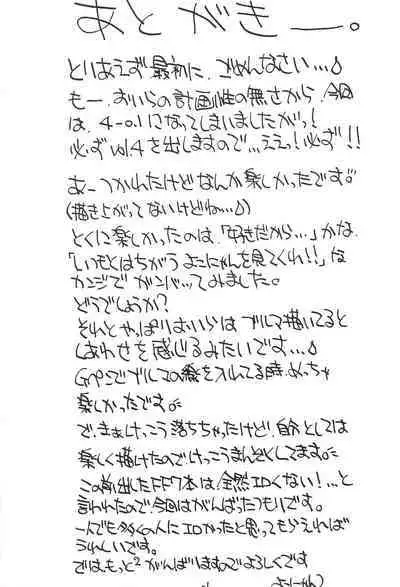 あとがきー。
とりあえず最初に、ごめんなさい…
もー、おいらの計画性の無さから、今回
は、4-0.1になってしまいましたがっ!
必ずvol.4を出しますので…ええっ!必ず!!
あーつかれたけどなんか楽しかったです。
(描き上がってないけどね…)
とくに楽しかったのは、「好きだから…」かな、
「いつもとはちがうよこにゃんを見てくれ!!」な
カンジでガンバッてみました。
どうでしょうか?
それとやっぱりおいらはブルマ描いてると
しあわせを感じるみたいです…
Gペンでブルマの線を入れてる時、めっちゃ
楽しかったです。
で、まぁけっこう落ちちゃったけど、自分としては
楽しく描けたので、けっこうまんぞくしてます。
この前出したFF7本は、全然エロくない!…と
言われたので今回はがんばったつもりです。
一人でも多くの人にエロかったと思ってもらえれば
うれしいです。
では、もっと²がんばりますのでよろしくです